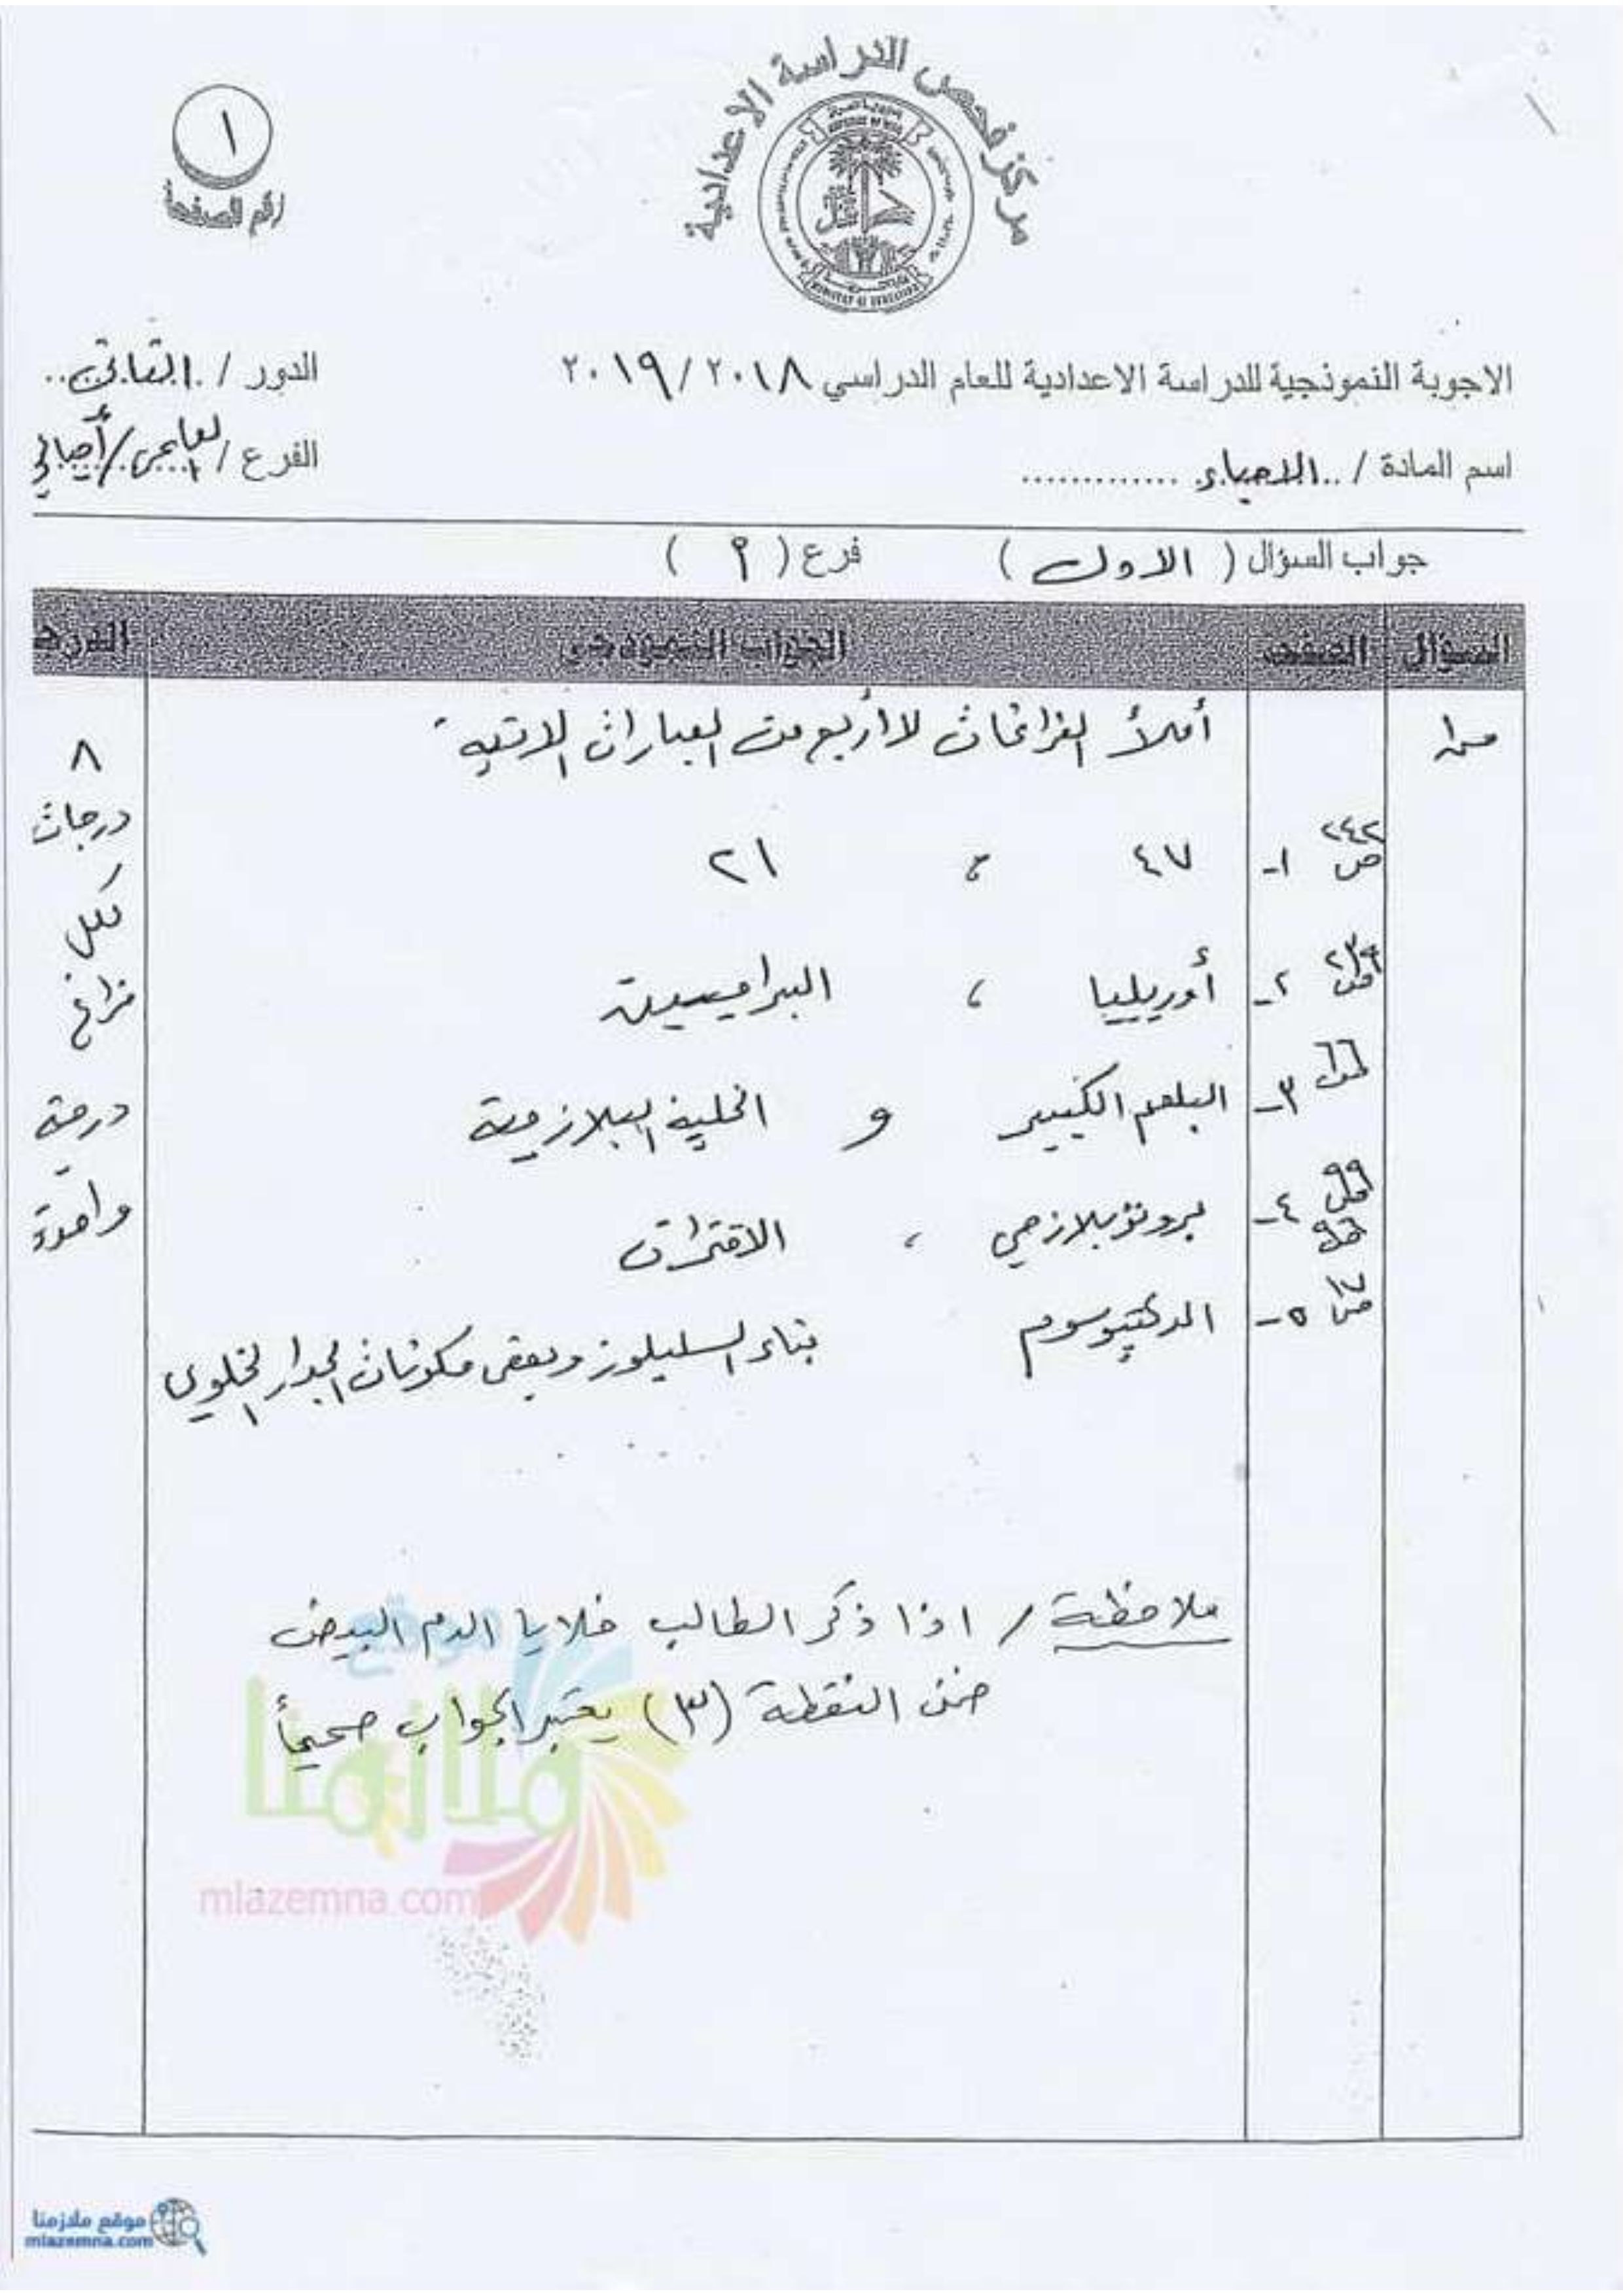 مركز فحص الدراسة الاعدادية
١
رقم الصفحة
الاجوبة النموذجية للدراسة الاعدادية للعام الدراسي ٢٠١٨ / ٢٠١٩
الدور / الثاني
اسم المادة / الاحياء
الفرع / العلمي / أحيائي
جواب السؤال ( الاول ) فرع ( P )
السؤال الصفحة الجواب النموذجي الدرجة
س١ أملأ الفراغات لأربع من العبارات الاتية
٨ درجات لكل فراغ درجة واحدة
ص ٢٤٢ ١- ٤٧ ، ٢١
٢- أوريليا ، البراميسيوم
٣- البلعم الكبير و الخلية البلازمية
ص ٩٩ ٤- بروتوبلازمي ، الاقتران
ص ١٧ ٥- الدكتيوسوم بناء السليلوز وبعض مكونات الجدار الخلوي
ملاحظة / اذا ذكر الطالب خلايا الدم البيض
ضمن النقطة (٣) يعتبر الجواب صحيحاً
موقع
ملازمنا
mlazemna.com
موقع ملازمنا
mlazemna.com